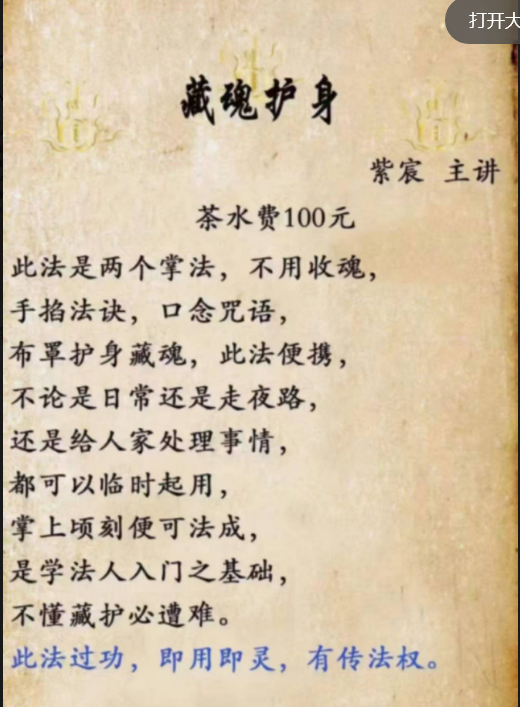 打开大
藏魂护身
紫宸 主讲
茶水费100元
此法是两个掌法，不用收魂，
手掐法诀，口念咒语，
布罩护身藏魂，此法便携，
不论是日常还是走夜路，
还是给人家处理事情，
都可以临时起用，
掌上顷刻便可法成，
是学法人入门之基础，
不懂藏护必遭难。
此法过功，即用即灵，有传法权。